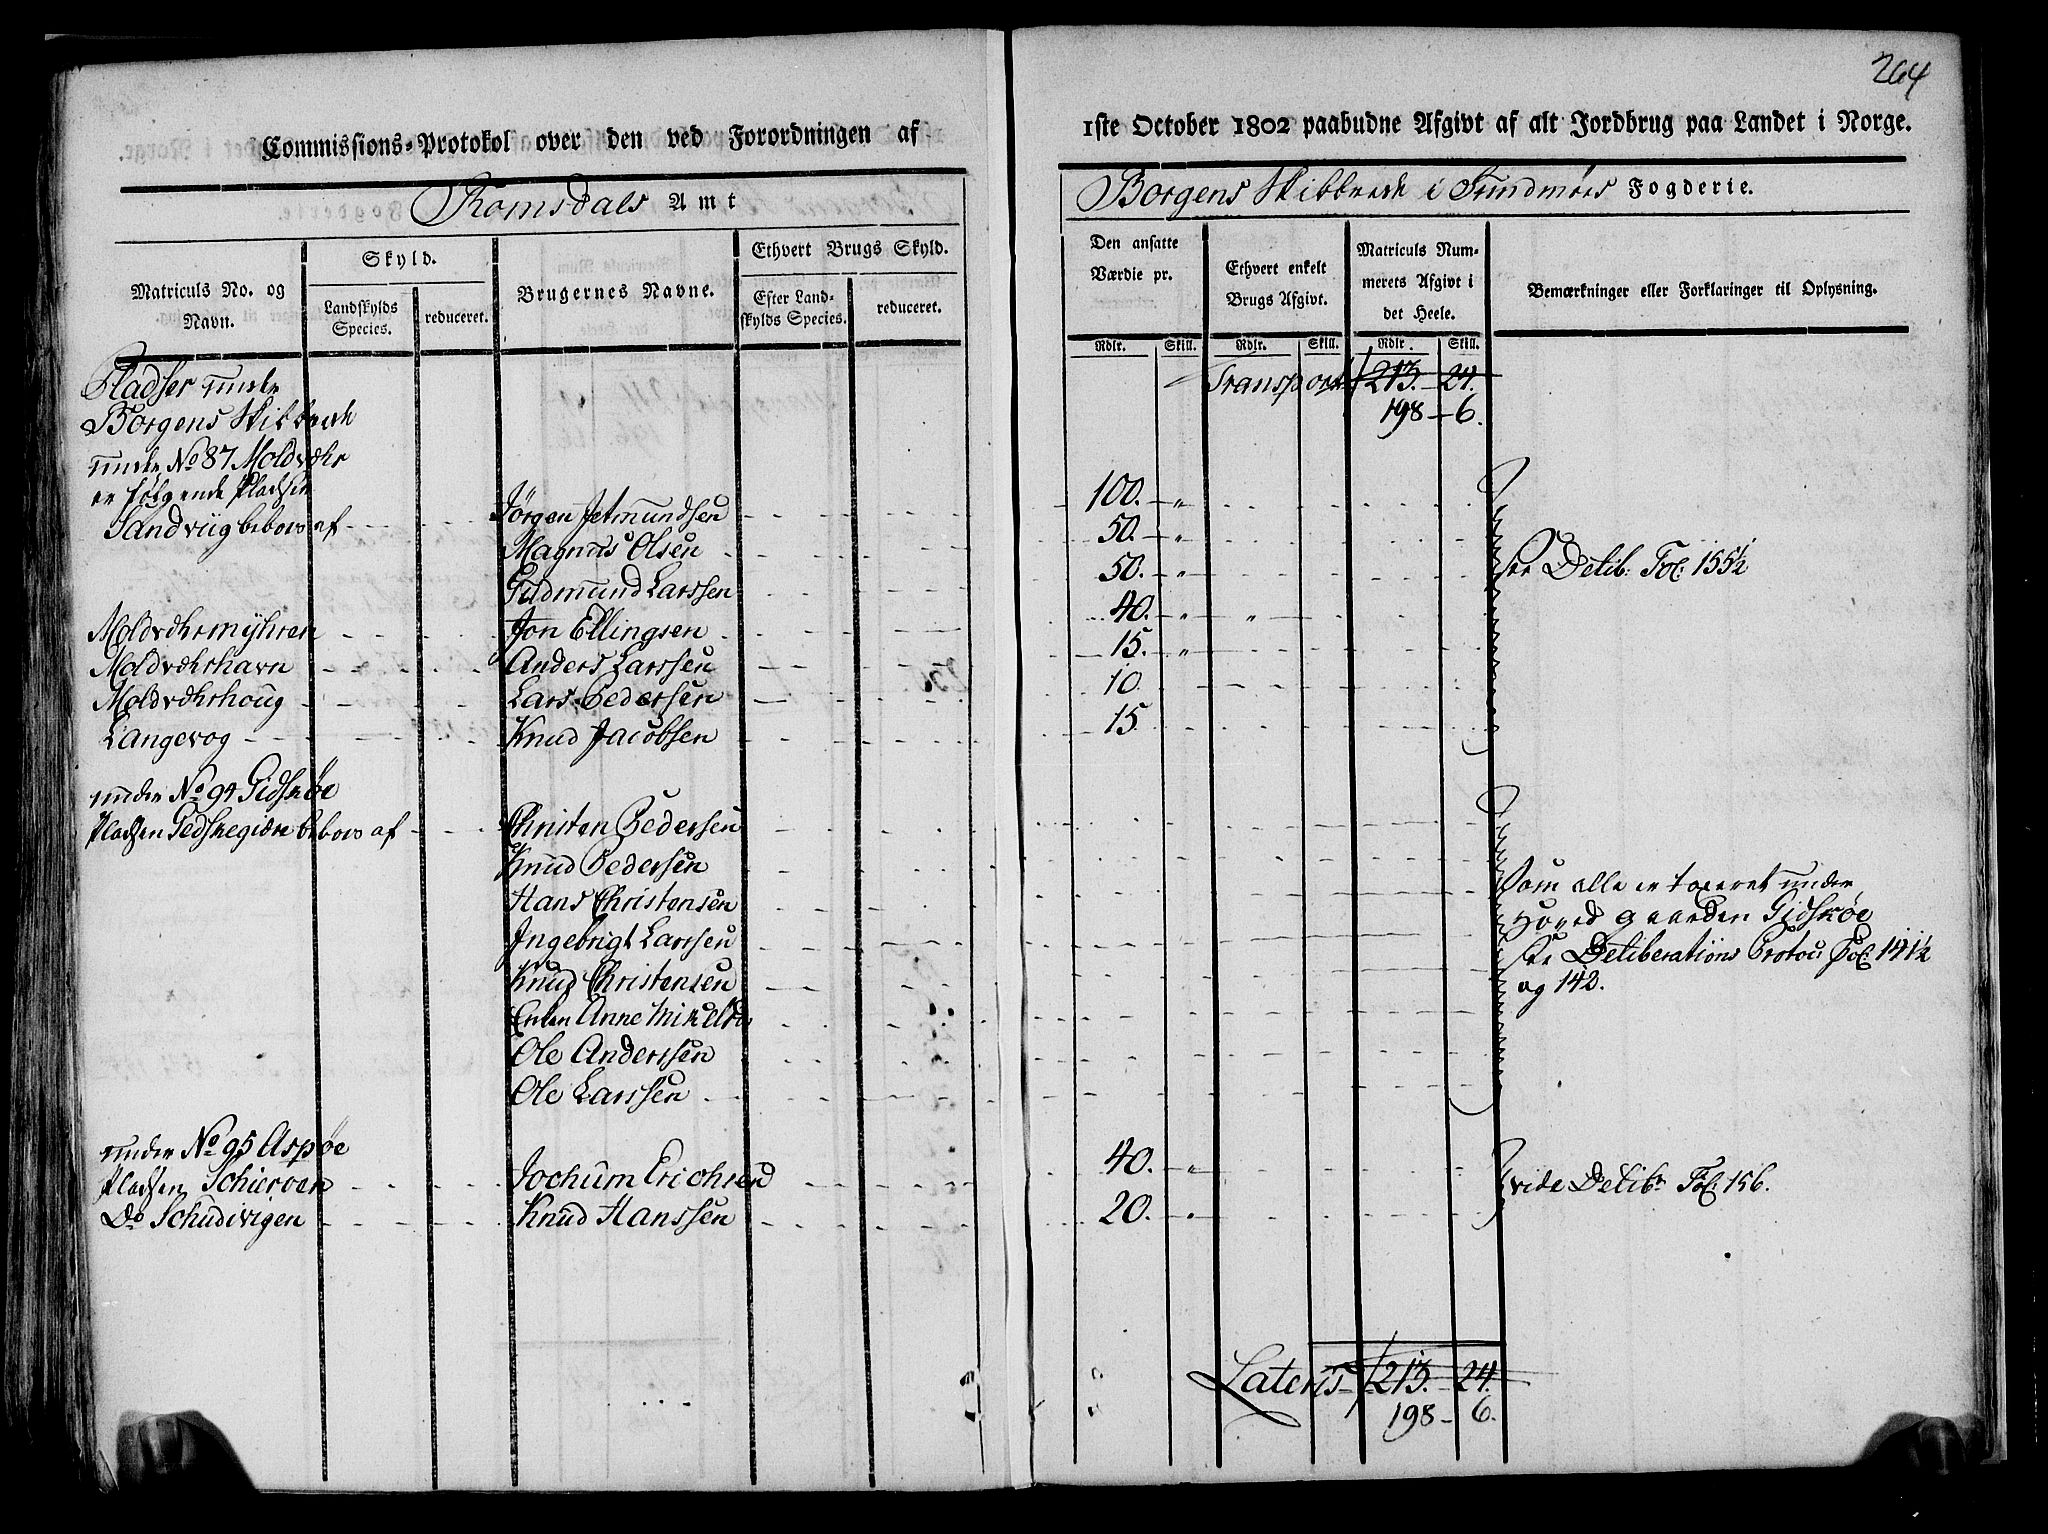 264
Commissions-Protokol over den ved Forordningen af
1ste October 1802 paabudne Afgivt af alt Jordbrug paa Landet i Norge.
Romsdals Amt
Borgens Skibbrede i Sundmørs Fogderie.
Matriculs No. og Navn.
Skyld.
Landskylds Species.
reduceret.
Brugernes Navne.
Ethvert Brugs Skyld.
Efter Landskylds Species.
reduceret.
Den ansatte Værdie pr.
Ethvert enkelt Brugs Afgivt.
Matriculs Nummerets Afgivt i det Heele.
Bemærkninger eller Forklaringer til Oplysning.
Rdlr. Skill. Rdlr. Skill. Rdlr. Skill.
Pladser unde
Transport 213. 24.
Borgens Skibbrede
198 - 6.
unde No 87 Moldvæhr
er følgende Pladser
Sandviig beboes af - Jørgen Jetmundsen 100. - "
Magnus Olsen 50. - "
Gudmund Larssen 50. - "
see Delib: Fol: 155½
Moldvæhrmÿhren - Jon Ellingsen 40. "
Moldvæhrhavn - Anders Larssen 15. "
Moldvæhrhoug - Lars Pedersen 10
Langevog - Knud Jacobsen 15
under No 94 Gidskøe
Pladsen Gedskegidre beboes af - Christen Pedersen
Knud Pedersen
Hans Christensen
Ingebrigt Larssen
Knud Christensen
Enken Anne Mikelsd
Ole Anderssen
Ole Larssen
Som alle er taxeret under
Hovedgaarden Gidskøe
see Deliberations Protoc: Fol: 141½
og 142.
under No 95 Aspøe
Pladsen Schierven - Jochum Erichsen 40. "
Do Schudivigen - Knud Hanssen 20. "
vide Delibr Fol: 156.
Lateris 213. 24.
198 - 6.